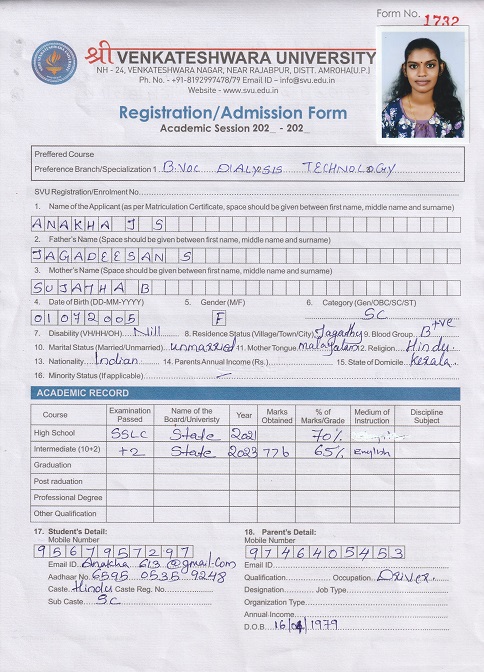 Form No. 1732
श्री VENKATESHWARA UNIVERSITY
NH - 24, VENKATESHWARA NAGAR, NEAR RAJABPUR, DISTT. AMROHA(U.P.)
Ph. No. - +91-8192997478/79 Email ID – info@svu.edu.in
Website - www.svu.edu.in
Registration/Admission Form
Academic Session 202_ - 202_
Preffered Course
Preference Branch/Specialization 1. B.VOC DIALYSIS TECHNOLOGY
SVU Registration/Enrolment No.
1. Name of the Applicant (as per Matriculation Certificate, space should be given between first name, middle name and surname)
ANAKHA J S
2. Father's Name (Space should be given between first name, middle name and surname)
JAGADEESAN S
3. Mother's Name (Space should be given between first name, middle name and surname)
SUJATHA B
4. Date of Birth (DD-MM-YYYY) 5. Gender (M/F) 6. Category (Gen/OBC/SC/ST)
01072005 F SC
7. Disability (VH/HH/OH) Nill 8. Residence Status (Village/Town/City) 9. Blood Group. B+ve
10. Marital Status (Married/Unmarried). unmarried 11. Mother Tongue. malayalam 12. Religion. Hindu.
13. Nationality. Indian 14. Parents Annual Income (Rs.) 15. State of Domicile. Kerala.
16. Minority Status (If applicable). –
ACADEMIC RECORD
Course Examination Passed Name of the Board/Univeristy Year Marks Obtained % of Marks/Grade Medium of Instruction Discipline Subject
High School SSLC State 2021 70%
Intermediate (10+2) +2 State 2023 776 65% English
Graduation
Post raduation
Professional Degree
Other Qualification
17. Student's Detail:
Mobile Number
9567957297
Email ID. Anakha 613 @gmail.com
Aadhaar No. 6595 0535 9248
Caste. Hindu Caste Reg. No.
Sub Caste. SC
18. Parent's Detail:
Mobile Number
9746405453
Email ID
Qualification. Occupation. DRIVER.
Designation. Job Type.
Organization Type.
Annual Income.
D.O.B. 16/04/1979